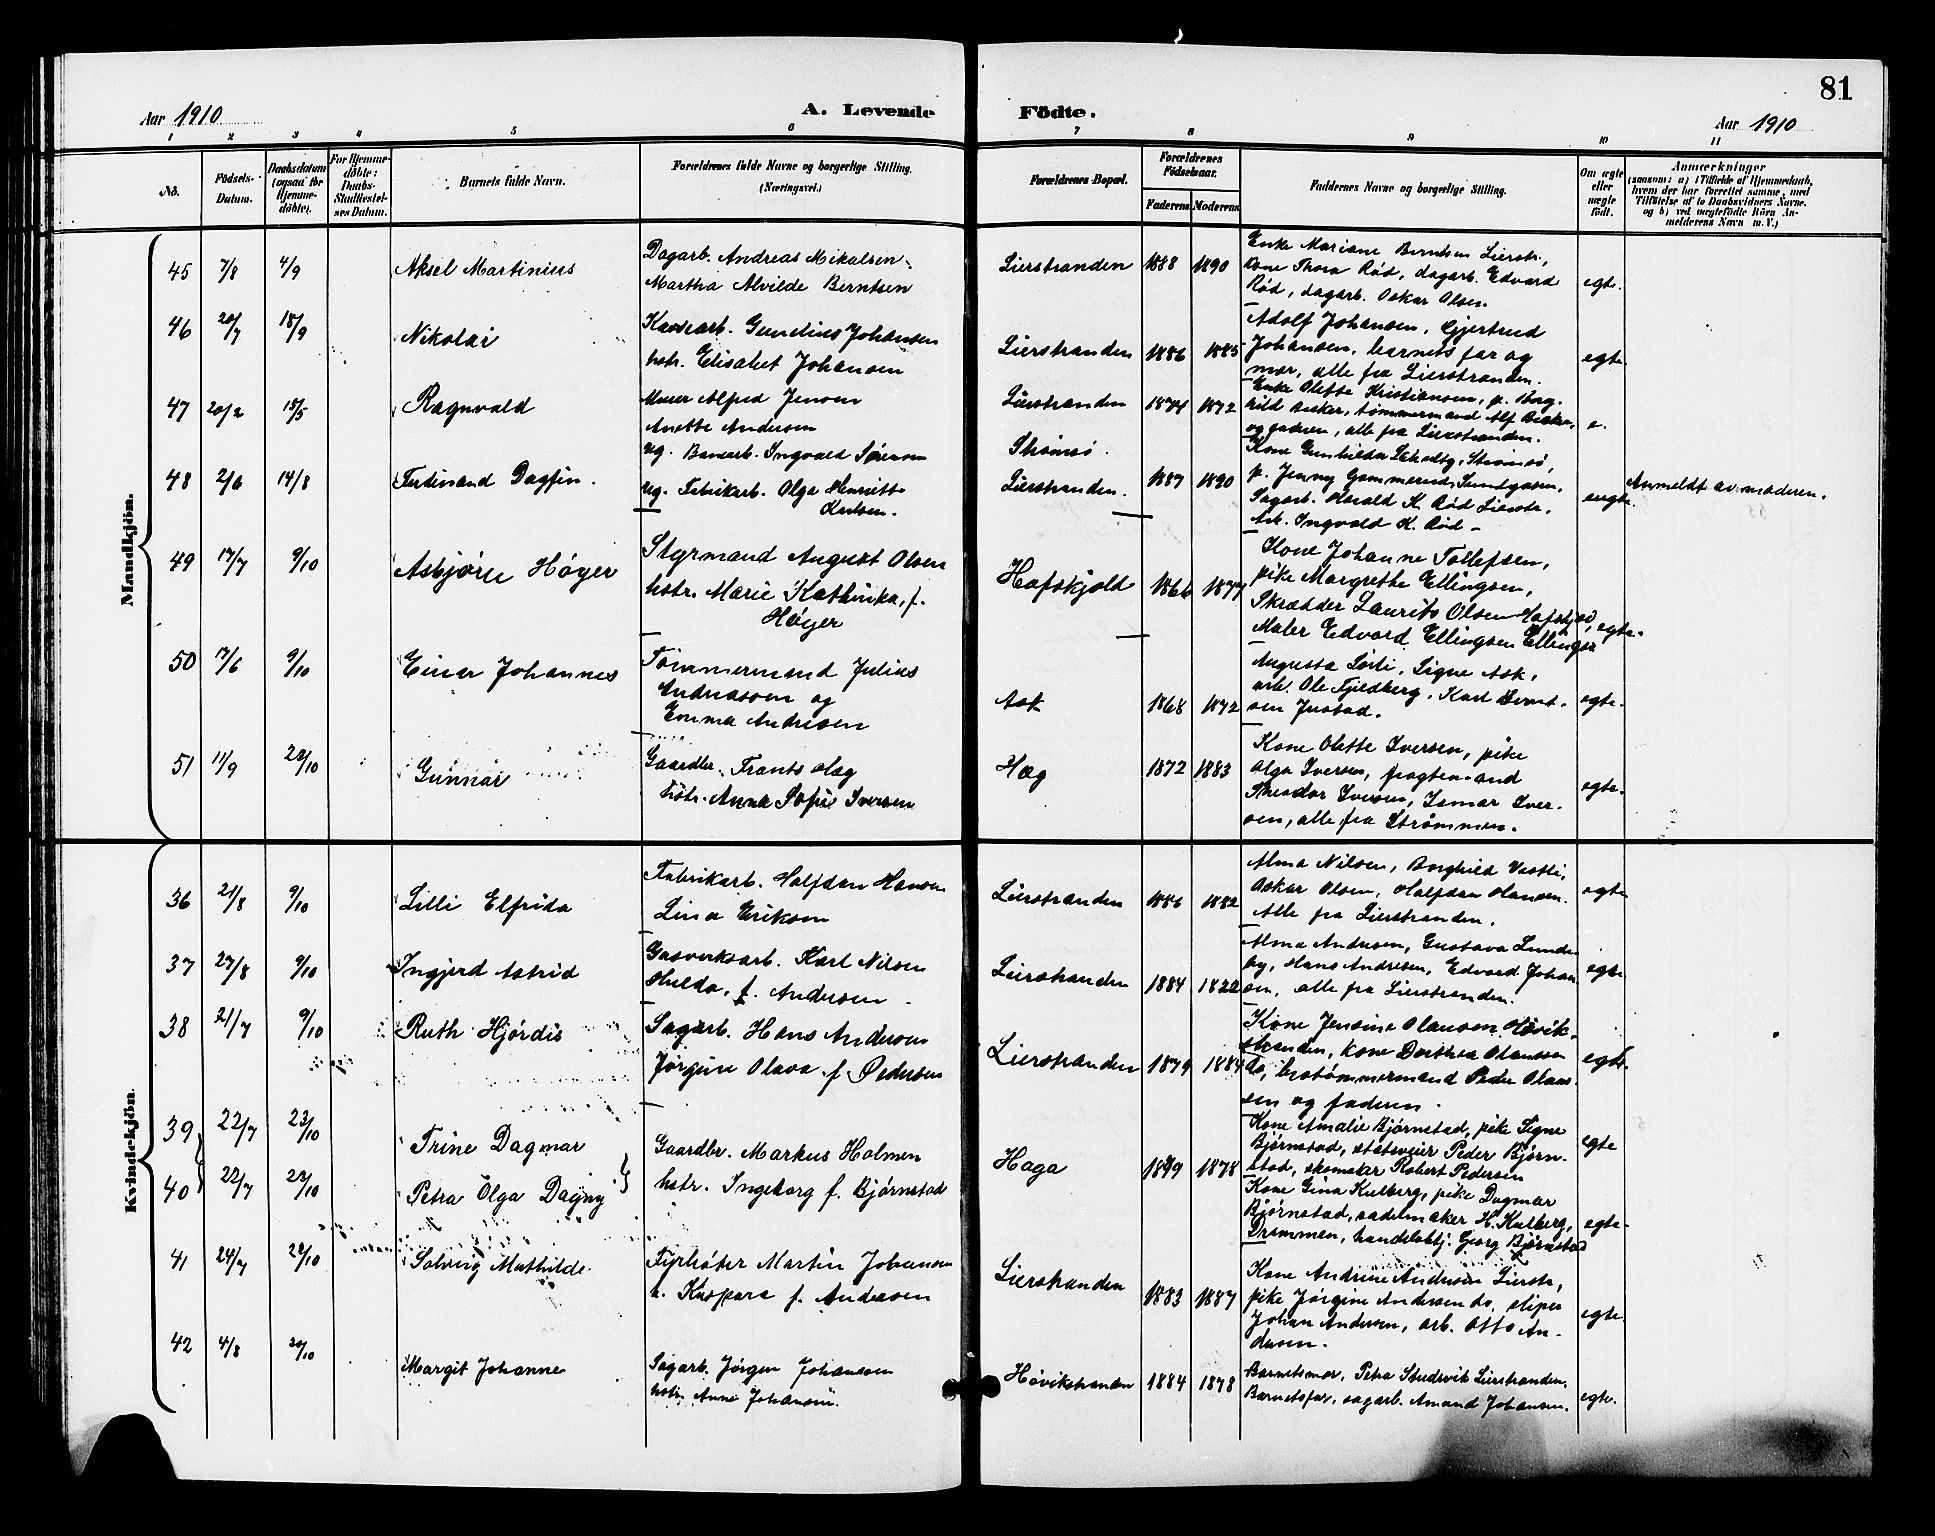 81
Aar 1910
A. Levende
Födte.
Aar 1910
1 2 3 4 5 6 7 8 9 10 11
No.
Födsels-
Datum.
Daabsdatum
(ogsaa for
Hjemme-
döbte).
For Hjemme-
döbte:
Daabs-
Stadfæstel-
ses Datum.
Barnets fulde Navn.
Forældrenes fulde Navne og borgerlige Stilling.
(Næringsvei.)
Forældrenes Bopæl.
Forældrenes
Födselsaar.
Faderens Moderens
Faddernes Navne og borgerlige Stilling.
Om ægte
eller
uægte
födt.
Anmærkninger
(saasom: a) i Tilfælde af Hjemmedaab,
hvem der har forrettet samme, med
Tilföielse af to Daabsvidners Navne.
og b) ved uægtefödte Börn An-
melderens Navn m. V.)
Mandkjön.
45 7/8 4/9 Aksel Martinius
Dagarb. Andreas Mikalsen
Martha Alvilde Berntsen
Lierstranden 1888 1890
Enke Mariane Berntsen Lierstr.,
Kone Thora Rød, dagarb. Edvard
Rød, dagarb. Oskar Olsen
egte.
46 20/7 18/9 Nikolai
Gundius Johansen
hstr. Elisabet Johansen
Lierstranden 1886 1885
Adolf Johansen, Gjertrud
Johansen, barnets far og
mor, alle fra Lierstranden.
egte
47 20/2 15/5 Ragnvald
Murer Alfred Jensen
Anette Andersen
Lierstranden 1874 1872
Enke Olefte Kristiansen, p. Rag-
hild Asker, tømmermand Alf Asker,
og faderen, alle fra Lierstranden.
e.
48 2/6 14/8 Ferdinand Dagfin.
Ug. Banearb. Ingvald Sørensen
Ug. Fabrikarb. Olga Henriette
Karlsen.
Strømsø.
Lierstranden. 1887 1890
Kone Gunhilda Schultz, Strømsø,
p. Jenny Gommerud, Sundgaten,
Sagarb. Harald K. Rød Lierstr.,
Arb. Ingvald K. Rød –
uegte.
Anmeldt av moderen.
49 17/7 9/10 Asbjørn Høyer
Styrmand August Olsen
hstr. Marie Kathinka, f.
Høyer
Hafskjold 1866 1877
Kone Johanne Tollefsen,
pike Margrethe Ellingsen,
Skrædder Laurits Olsen Hafskjold,
Maler Edvard Ellingsen
egte.
50 17/6 9/10 Einar Johannes
Tømmermand Julius
Andreassen og
Emma Andresen
Ask 1868 1872
Augusta Sørli, Signe Ask,
arb. Ole Fjeldberg, Karl Bernt-
sen Justad.
egte.
51 11/9 23/10 Gunnar
Gaardbr. Frants Hæg
hstr. Anna Sofie Iversen
Hæg 1872 1883
Kone Olette Iversen, pike
Olga Iversen, fragtemand
Theodor Iversen, Ismar Iver-
sen, alle fra Strømmen.
egte.
Kvindekjön.
36 21/8 9/10 Lilli Elfrida
Fabrikarb. Halfdan Hansen
Lina Eriksen
Lierstranden 1886 1882
Alma Nilsen, Borghild Vestli,
Oskar Olsen, Halfdan Hansen.
Alle fra Lierstranden.
egte
37 27/8 9/10 Ingjerd Astrid
Gasverksarb. Karl Nilsen
Hulda, f. Andersen
Lierstranden 1884 1822
Alma Andersen, Gustava Lunde-
by, Hans Andresen, Edvard Johan-
sen, alle fra Lierstranden.
egte
38 21/7 9/10 Ruth Hjørdis
Sagarb. Hans Andersen
Jørgine Olava f. Pedersen
Lierstranden 1879 1884
Kone Jensine Olausen Høvik-
stranden, kone Dorthea Olaussen
do, tømmermand Peder Olaus-
sen og faderen.
egte.
39 22/7 23/10 Trine Dagmar
40 22/7 23/10 Petra Olga Dagny
Gaardbr. Markus Holmen
hstr. Ingeborg f. Bjørnstad
Haga 1879 1878
Kone Amalie Bjørnstad, pike Signe
Bjørnstad, Peder Bjørn-
stad, skomaker Robert Pedersen
egte
Kone Gina Kulberg, pike Dagmar
Bjørnstad, sadelmaker H. Kulberg,
Drammen, handelsbtj. Georg Bjørnstad
egte.
41 24/7 23/10 Solveig Mathilde
Fyrbøter Martin Johansen
h. Kaspara f. Andersen
Lierstranden 1883 1887
Kone Andrine Andersen Lierstr.,
pike Jørgine Andersen do, sliper
Johan Andersen, arb. Otto An-
dersen.
egte.
42 4/8 20/10 Margit Johanne
Sagarb. Jørgen Johansen
hstr. Anne Johansen.
Høvikstranden 1884 1878
Barnets mor, Petra Lierstranden,
Barnets far, sagarb. Amand Johansen.
egte.